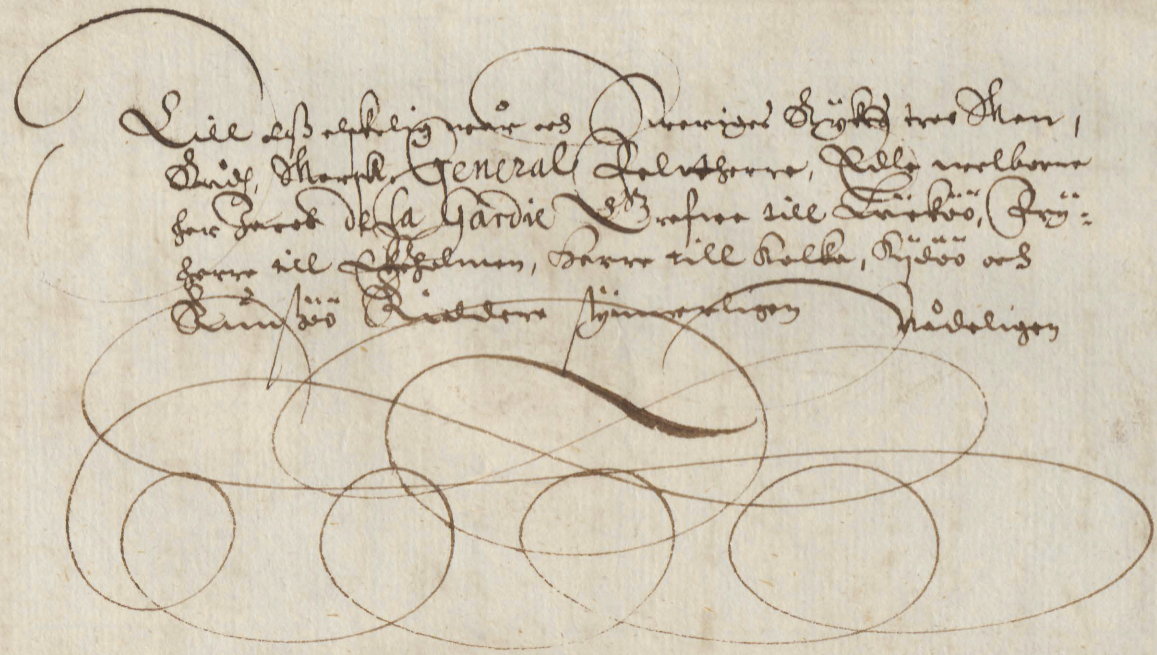 Till oss elskelig wår och Sweriges Rÿkes troo Man,
Rådh, Marsk, General Feltherre, Edle welborne
her Jacob De La Gardie Grefwe till Läcköö, Frÿ-
herre till Ekholmen, herre till Kolka, Kÿdöö och
Runsöö Riddere sÿnnerligen nådeligen